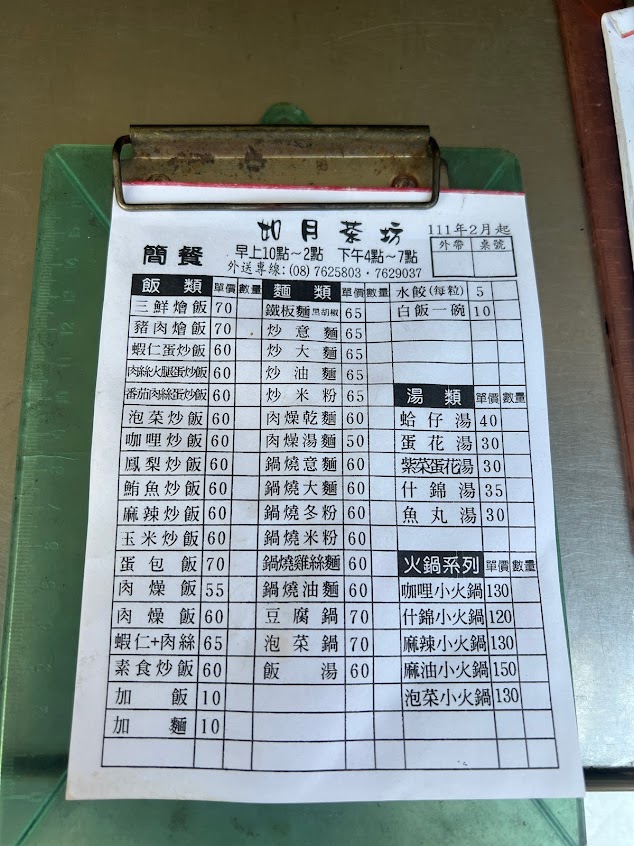 如月茶坊
111年2月起
簡餐
早上10點~2點 下午4點~7點
外帶 桌號
外送專線:(08) 7625803・7629037
飯類 單價 數量
三鮮燴飯 70
豬肉燴飯 70
蝦仁蛋炒飯 60
肉絲火腿蛋炒飯 60
番茄肉絲蛋炒飯 60
泡菜炒飯 60
咖哩炒飯 60
鳳梨炒飯 60
鮪魚炒飯 60
麻辣炒飯 60
玉米炒飯 60
蛋包飯 70
肉燥飯 55
肉燥飯 60
蝦仁+肉絲 65
素食炒飯 60
加飯 10
加麵 10
麵類 單價 數量
鐵板麵黑胡椒 65
炒意麵 65
炒大麵 65
炒油麵 65
炒米粉 65
肉燥乾麵 60
肉燥湯麵 50
鍋燒意麵 60
鍋燒大麵 60
鍋燒冬粉 60
鍋燒米粉 60
鍋燒雞絲麵 60
鍋燒油麵 60
豆腐鍋 70
泡菜鍋 70
飯湯 60
水餃(每粒) 5
白飯一碗 10
湯類 單價 數量
蛤仔湯 40
蛋花湯 30
紫菜蛋花湯 30
什錦湯 35
魚丸湯 30
火鍋系列 單價 數量
咖哩小火鍋 130
什錦小火鍋 120
麻辣小火鍋 130
麻油小火鍋 150
泡菜小火鍋 130